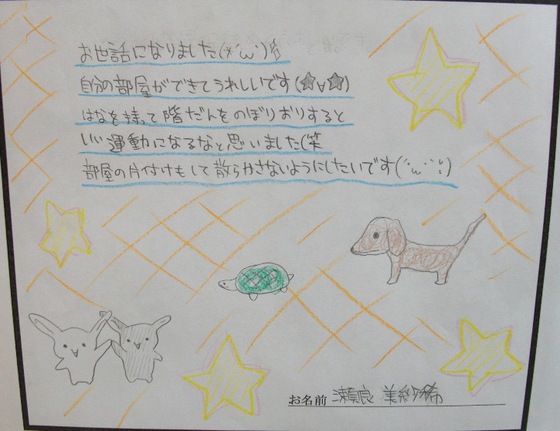 お世話になりました(*'ω')彡
自分の部屋ができてうれしいです(★∨★)
はなを持って階だんをのぼりおりすると
いい運動になるなと思いました(笑
部屋の片付けもして散らかさないようにしたいです
お名前 瀬良 美紗稀